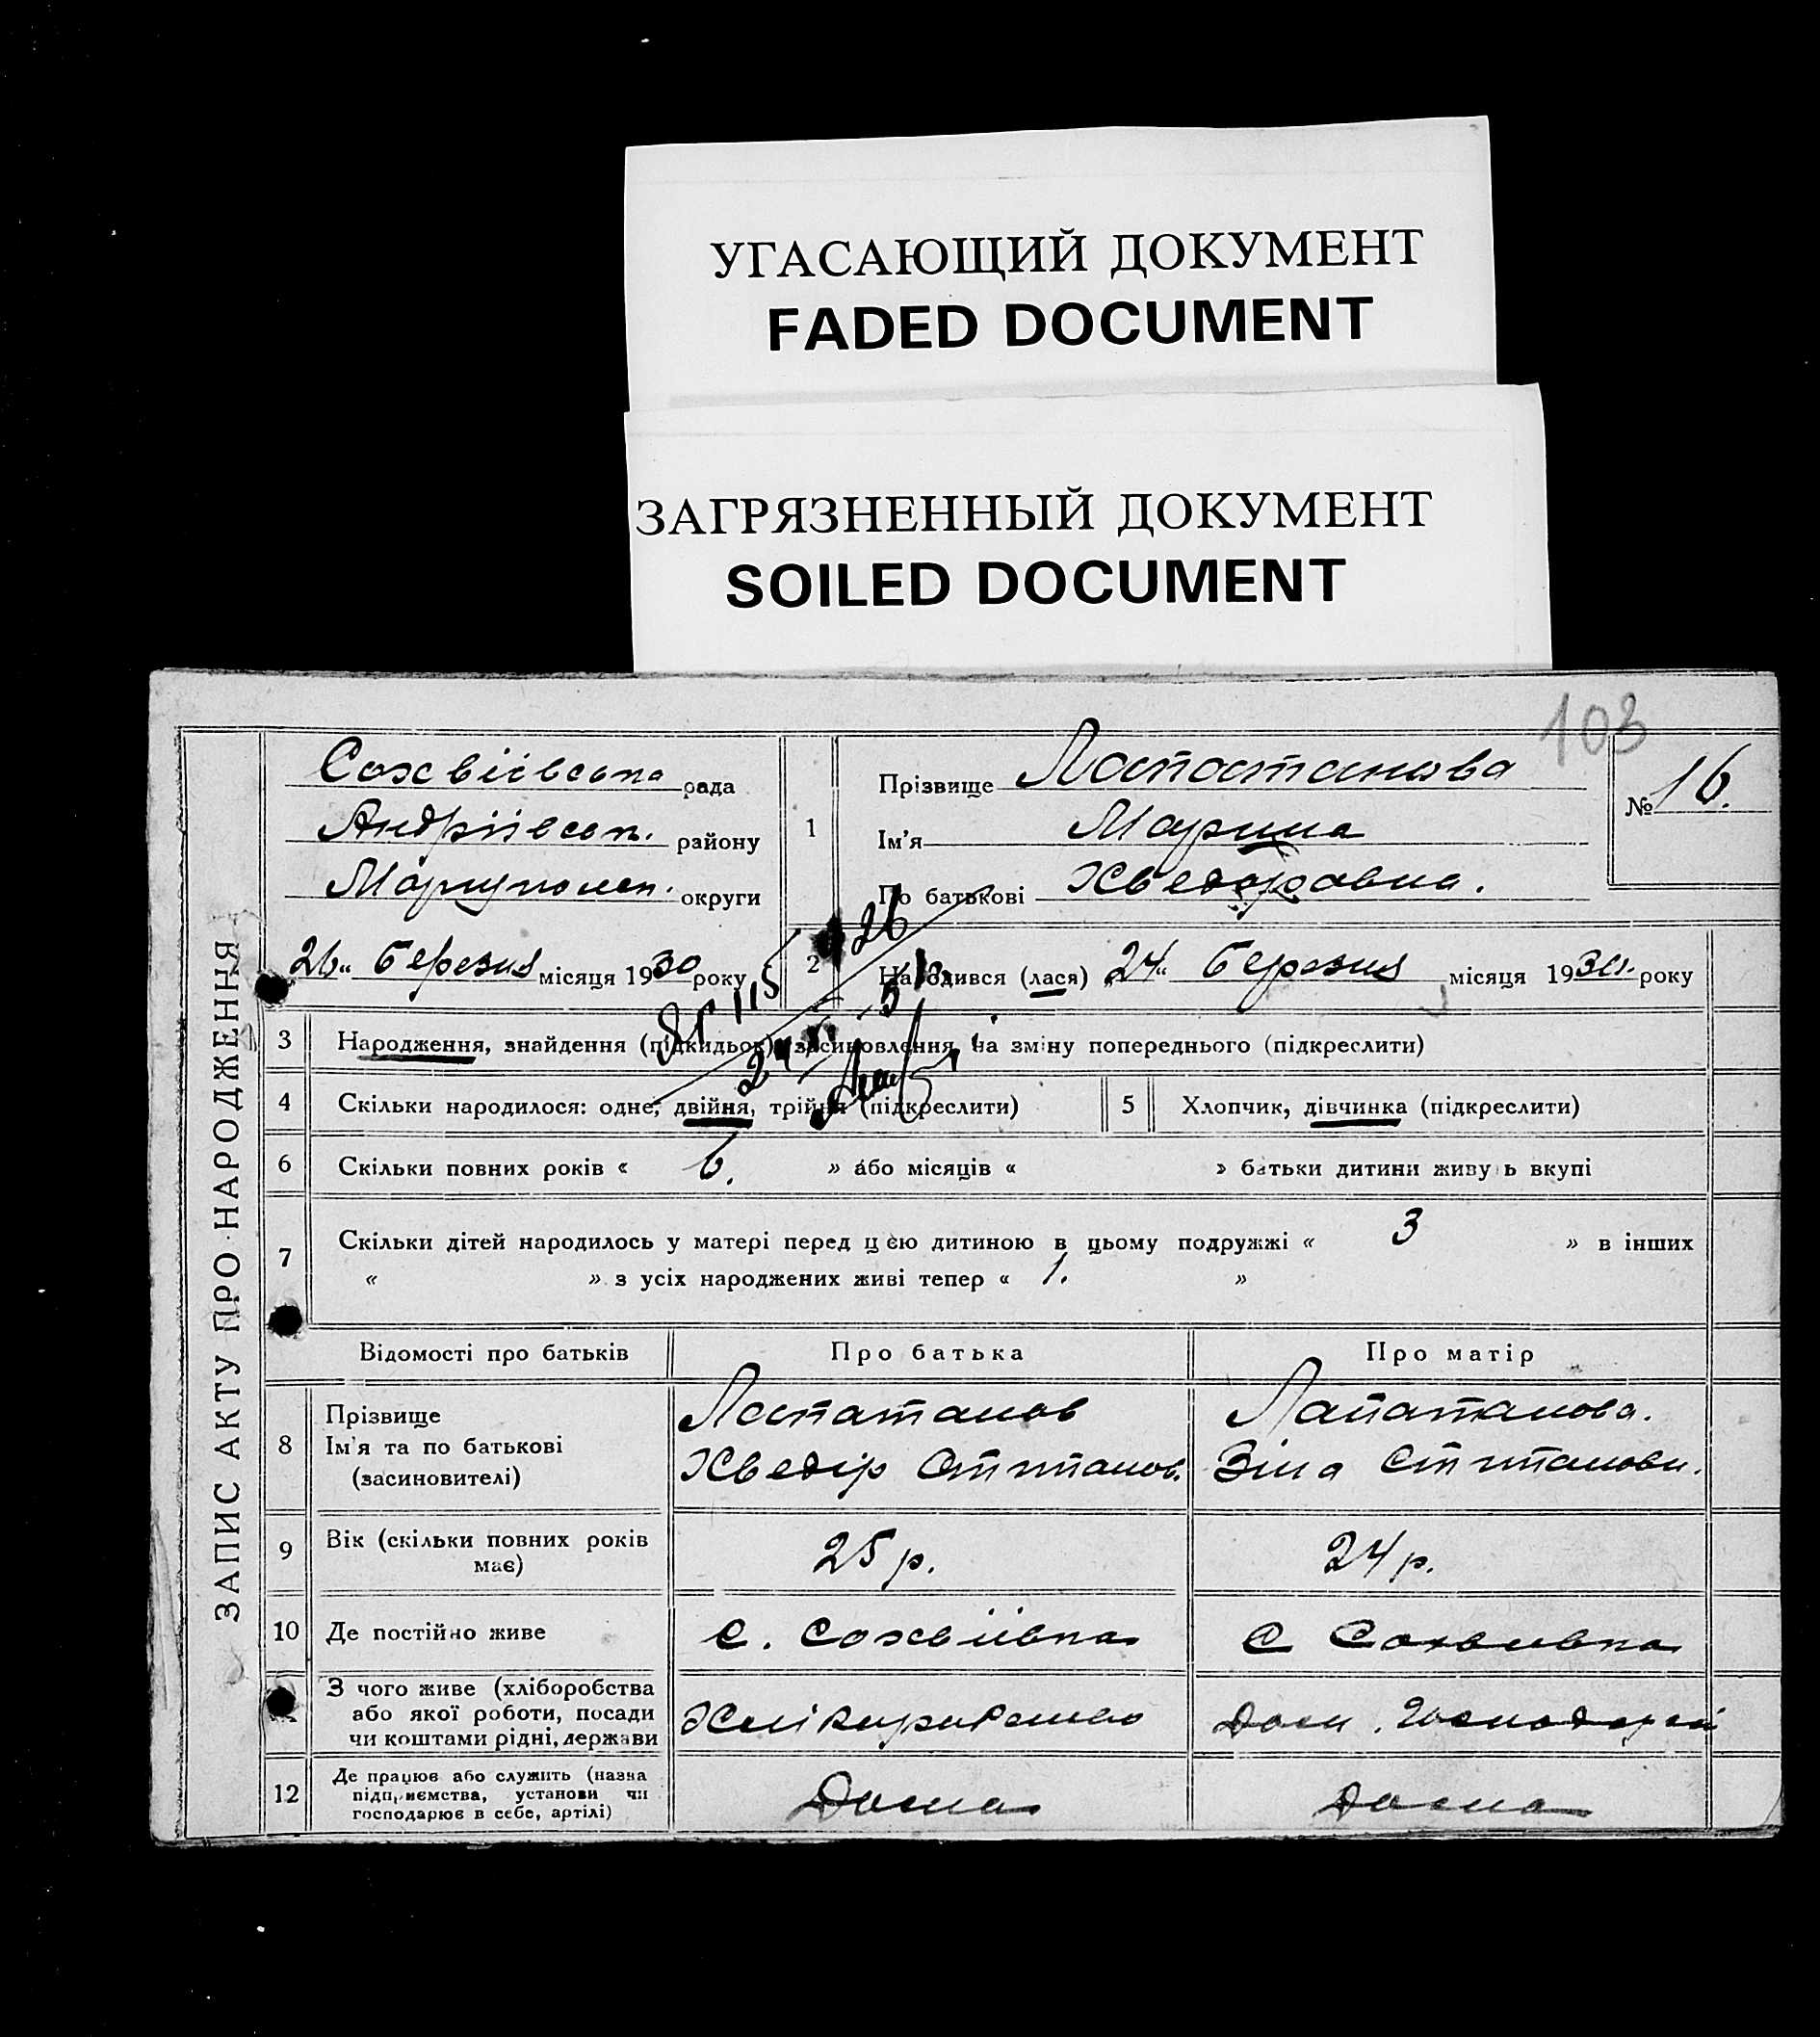 УГАСАЮЩИЙ ДОКУМЕНТ
FADED DOCUMENT
ЗАГРЯЗНЕННЫЙ ДОКУМЕНТ
SOILED DOCUMENT
103
ЗАПИС АКТУ ПРО НАРОДЖЕННЯ
Сохвіївська рада
Андріївськ. району
Маріупольськ. округи
26" березня місяця 1930 року
1
Прізвище Лапатанова
Ім'я Марина
По батькові Хведоровна.
№ 16.
2 Народився (лася) "24" березня місяця 1930. року
3 Народження, знайдення (підкидьок), засиновлення на зміну попереднього (підкреслити)
4 Скільки народилося: одне, двійня, трійня (підкреслити)
5 Хлопчик, дівчинка (підкреслити)
6 Скільки повних років « 6. » або місяців « » батьки дитини живуть вкупі
7 Скільки дітей народилось у матері перед цією дитиною в цьому подружжі « 3 » в інших
« » з усіх народжених живі тепер « 1. »
Відомості про батьків Про батька Про матір
8 Прізвище Лапатанов Лапатанова.
Ім'я та по батькові Хведір Зіна
(засиновителі)
9 Вік (скільки повних років має) 25 р. 24 р.
10 Де постійно живе с. Сохвіївка с Сохвиевка
З чого живе (хліборобства
або якої роботи, посади
чи коштами рідні, держави
Дом. господарка
12 Де працює або служить (назва
підприємства, установи чи
господарює в себе, артілі)
Дома Дома